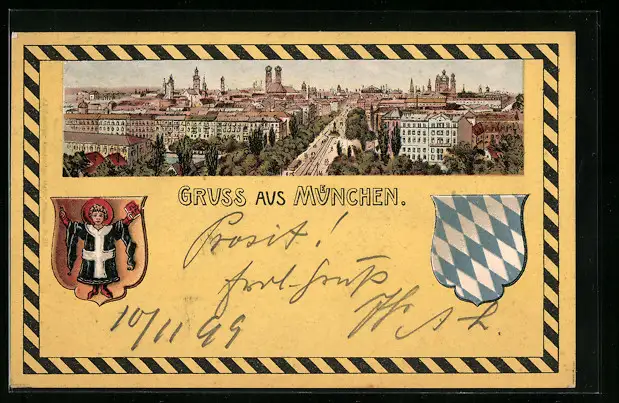 GRUSS AUS MÜNCHEN.
Prosit!
frdl. Gruß
10/11 99